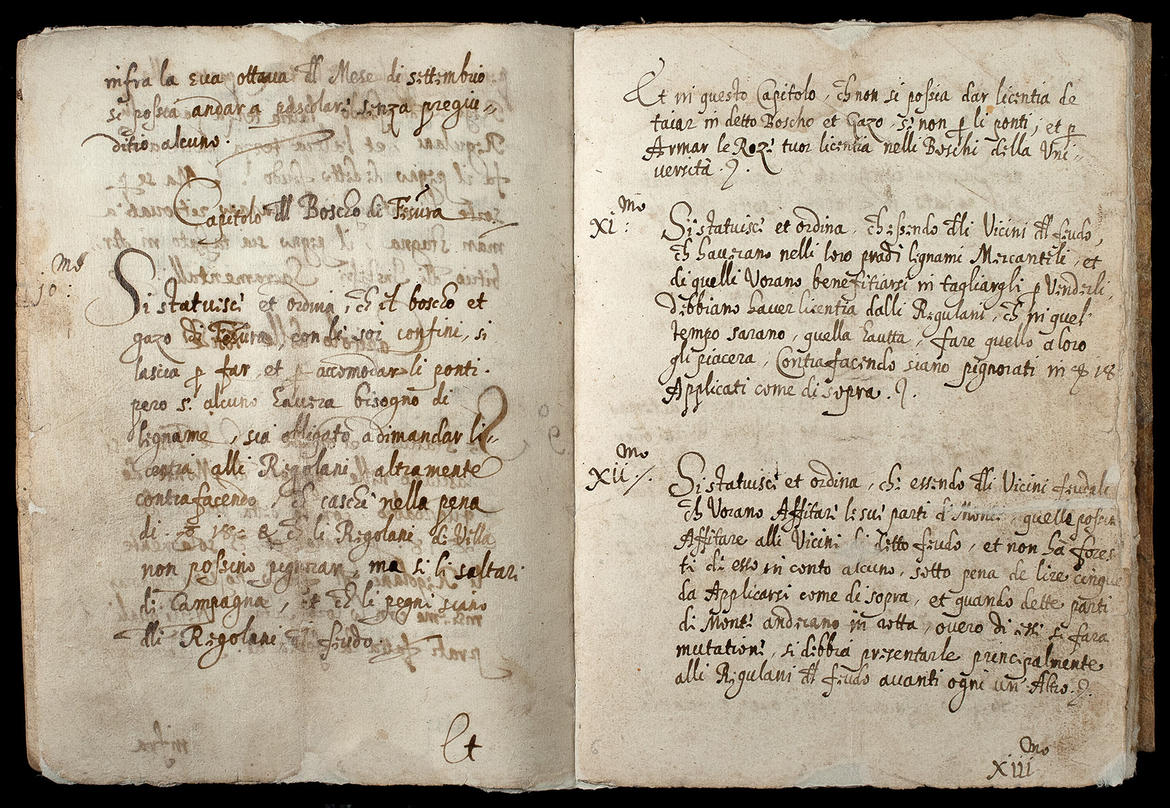 infra la sua ottaua dl Mese di settembrio
si possa andar a pascolar' senza pregiu=
ditio alcuno.
Capitolo dl Boscho di Fesura
mo
10:
Si statuisc' et ordina, ch il boscho et
gazo di Fesura con li soi confini, si
lascia p far, et p accomodar li ponti.
pero s' alcuno hauera bisogno di
legname, sia obligato adimandar li=
centia alli Regolani, altramente
contrafacendo, ch caschi nella pena
di 18 & ch li Regolani di Villa
non possino pignorar, ma si li saltari
di Campagna, et ch li pegni siano
dlli Regolani dl feudo.
Et
Et in questo Capitolo, ch non si possa dar licentia de
taiar in detto Boscho et Gazo, se non p li ponti, et p
Armar le Roze tuor licentia nelli Boschi della Vni=
uersità.
mo
XI:
Si statuisc' et ordina, ch essendo dlli Vicini dl feudo,
ch hauerano nelli loro pradi legnami Mercantili, et
di quelli Vorano benefitiarsi in tagliargli p Venderli
debbiano hauer licentia dalli Regulani, ch in quel
tempo sarano, quella hautta, fare quello a loro
gli piacera, Contrafacendo siano pignorati in 18
Applicati come di sopra.
mo
XII:
Si statuisc' et ordina, ch essendo dlli Vicini feudali
ch Vorano Affitar' le sue parti di Monte, quelle possa
Affitare alli Vicini di ditto feudo, et non ha fores
ti di esso in conto alcuno, sotto pena de lire cinque
da Applicarsi come di sopra, et quando dette parti
di Mont' andciano in rotta, ouero di esse si fara
mutation', si debbia presentarle principalmente
alli Regulani dl feudo auanti ogni un' Altro.
mo
XIII